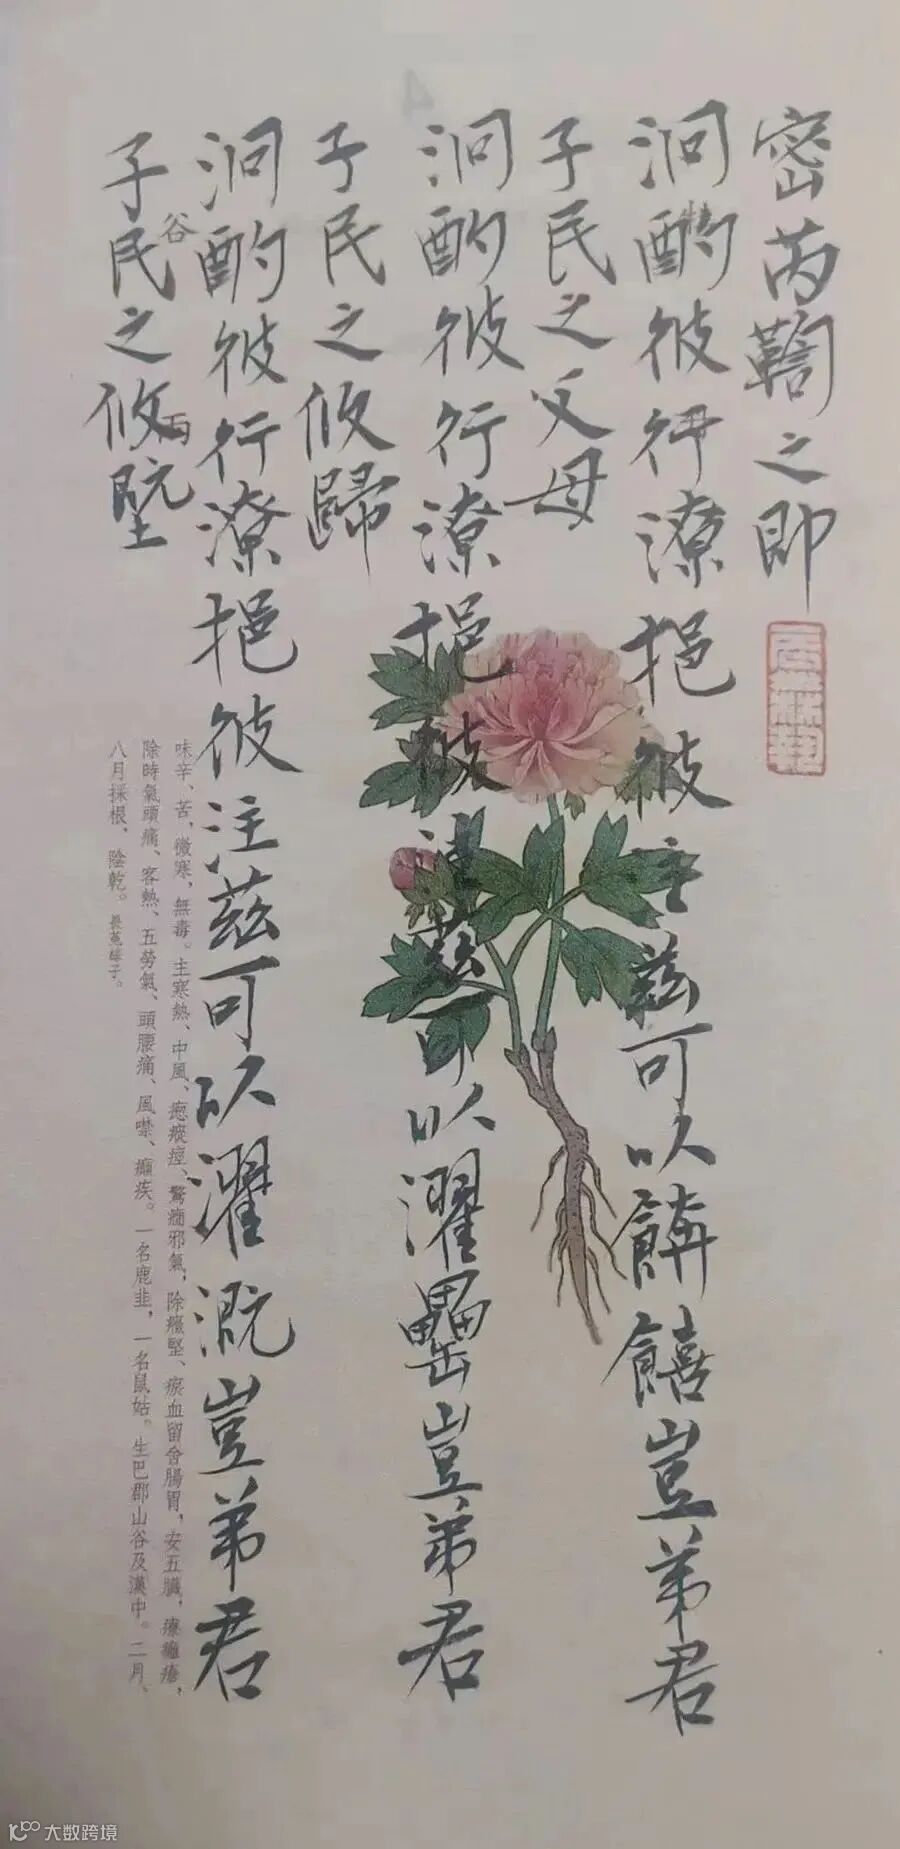 密芮鞫之即
泂酌彼行潦挹彼注茲可以餴饎豈弟君
子民之父母
泂酌彼行潦挹彼注茲可以濯罍豈弟君
子民之攸歸
泂酌彼行潦挹彼注茲可以濯溉豈弟君
子民之攸塈
谷雨
味辛、苦,微寒,無毒。主寒熱、中風、瘛瘲、痙、驚癇邪氣,除癥堅、瘀血留舍腸胃,安五臟,療癰瘡,
除時氣頭痛、客熱、五勞氣、頭腰痛、風噤、癲疾。一名鹿韭,一名鼠姑。生巴郡山谷及漢中。二月、
八月採根、陰乾。畏菟絲子。
大数跨境